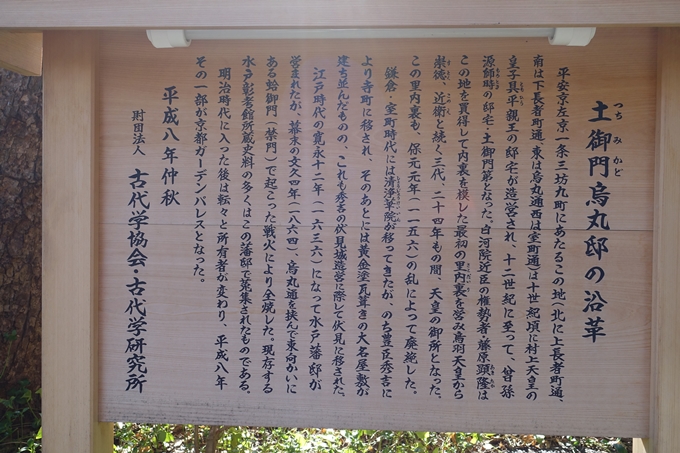 土御門烏丸邸の沿革
つちみかど
平安京左京一条三坊九町にあたるこの地（北に上長者町通、
南は下長者町通、東は烏丸通西は室町通）は十世紀頃に村上天皇の
皇子具平親王の邸宅が造営され、十二世紀に至って、曽孫
源師時の邸宅・土御門第となった。白河院近臣の権勢者・藤原顕隆は
この地を買得して内裏を模した最初の里内裏を営み鳥羽天皇から
崇徳、近衛と続く三代、二十四年もの間、天皇の御所となった。
この里内裏も、保元元年（一一五六）の乱によって廃絶した。
鎌倉・室町時代には清浄華院が移ってきたが、のち豊臣秀吉に
より寺町に移され、そのあとには黄金塗瓦葺きの大名屋敷が
建ち並んだものの、これも秀吉の伏見城造営に際して伏見に移された。
江戸時代の寛永十二年（一六三六）になって水戸藩邸が
営まれたが、幕末の文久四年（一八六四）、烏丸通を挟んで東向かいに
ある蛤御門（禁門）で起こった戦火により全焼した。現存する
水戸彰考館所蔵史料の多くはこの藩邸で蒐集されたものである。
明治時代に入った後は転々と所有者が変わり、平成八年
その一部が京都ガーデンパレスとなった。
平成八年仲秋
財団法人 古代学協会・古代学研究所